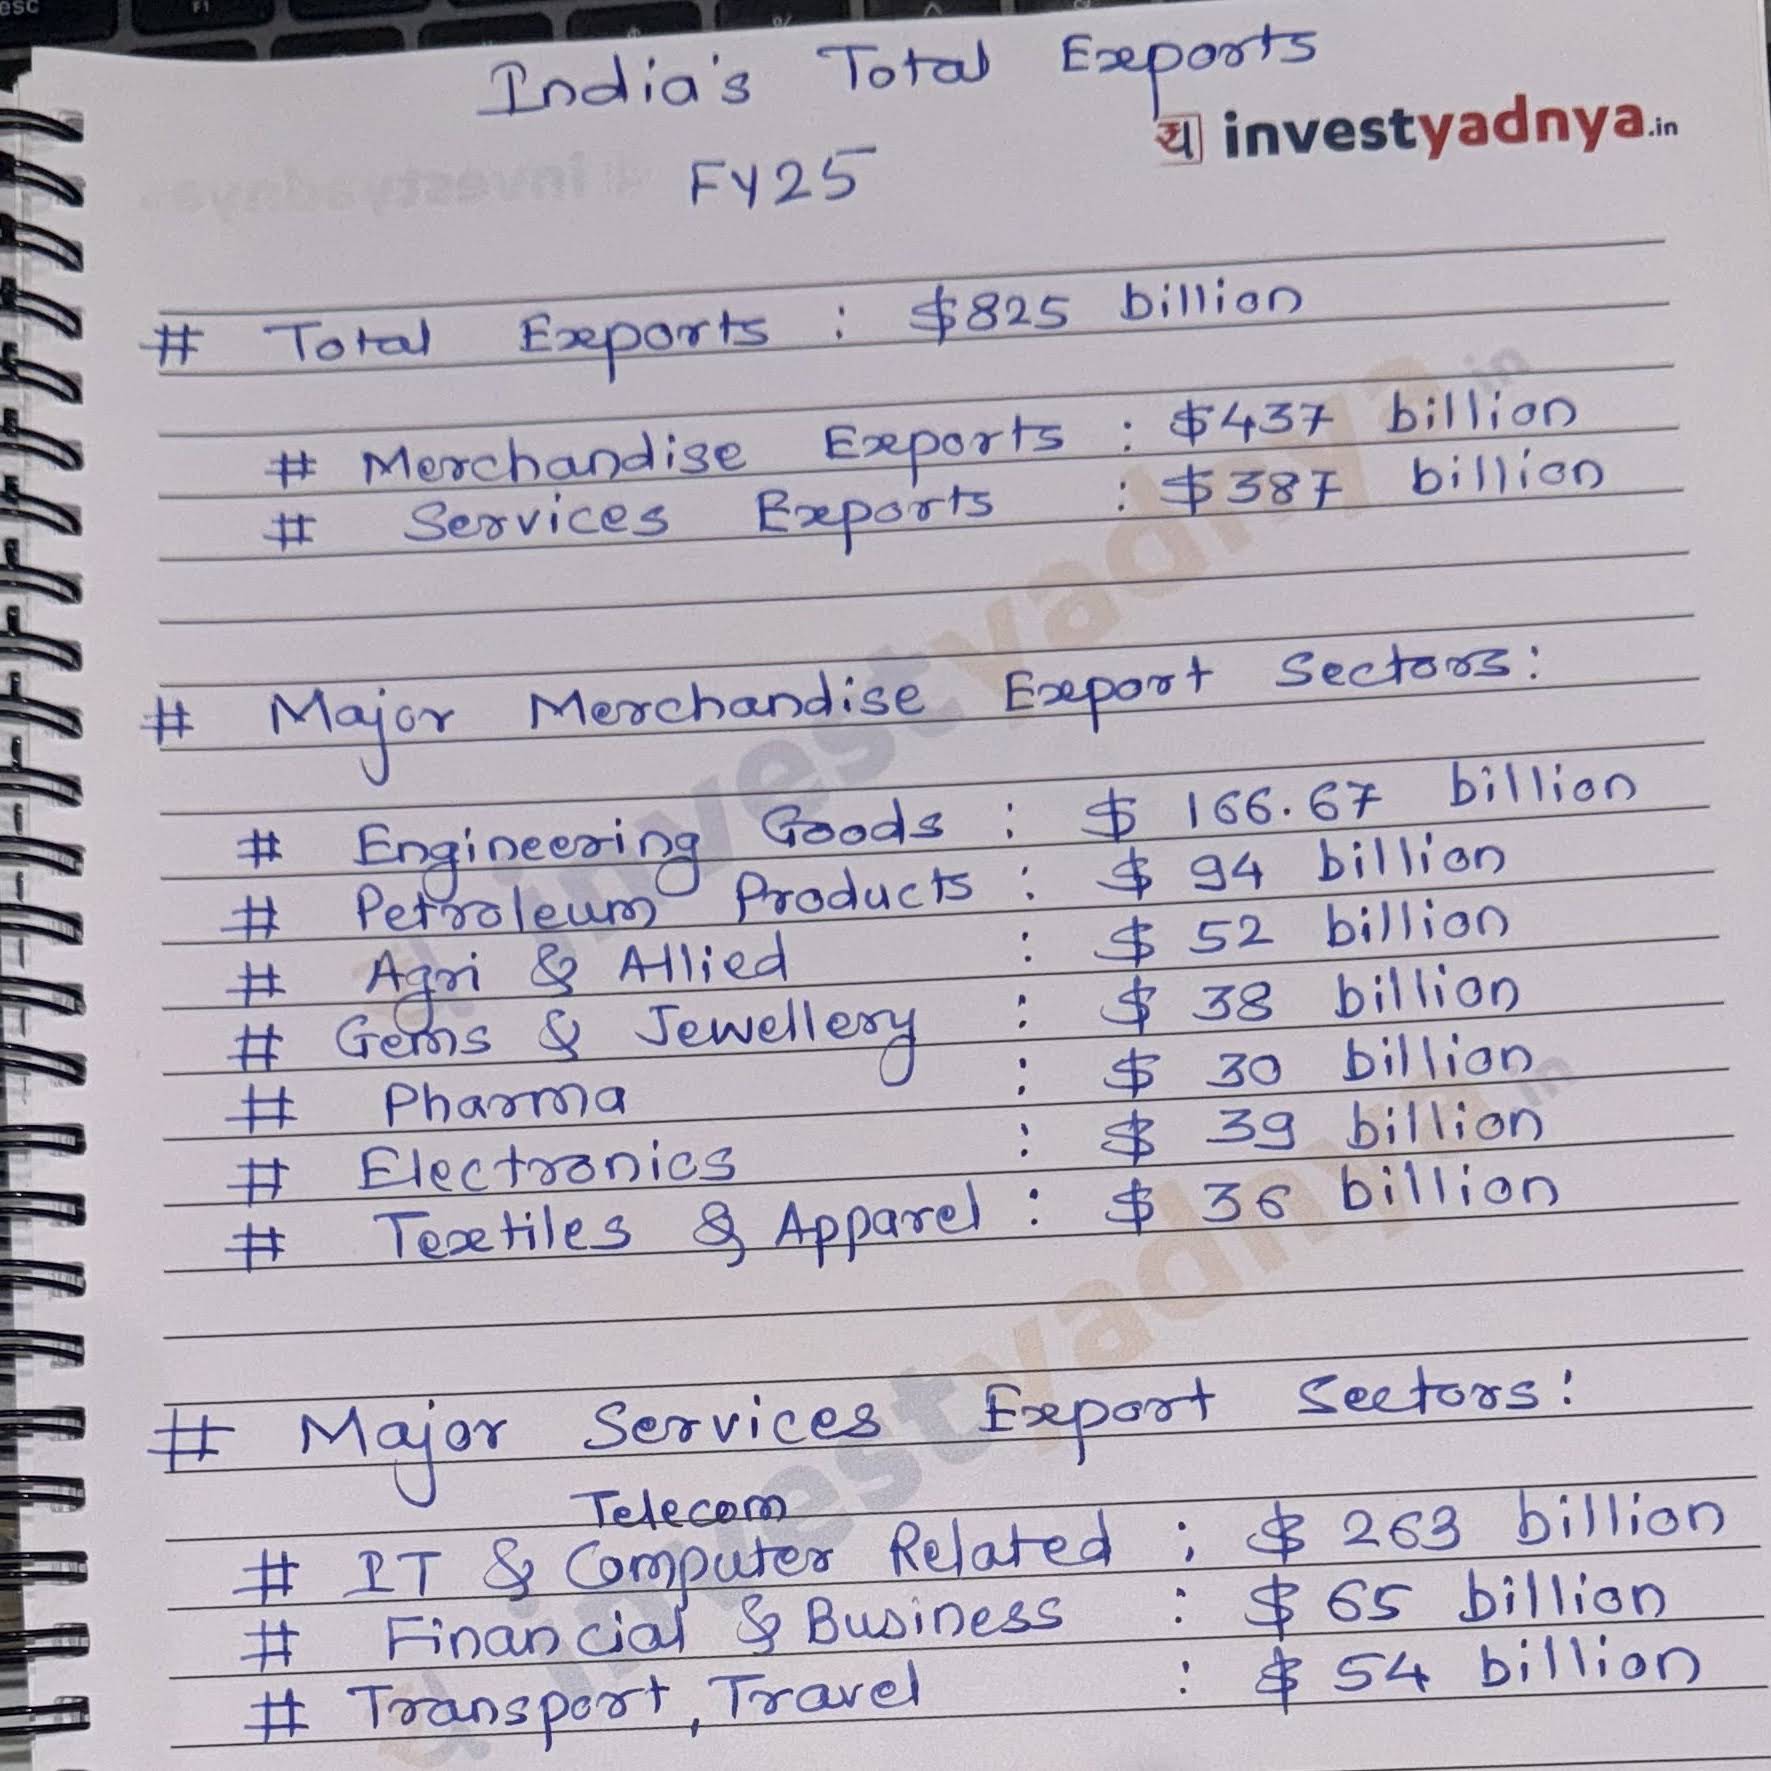 India's Total Exports
य investyadnya.in
FY25
# Total Exports : $825 billion
# Merchandise Exports : $437 billion
# Services Exports : $387 billion
# Major Merchandise Export Sectors:
# Engineering Goods : $ 166.67 billion
# Petroleum Products : $ 94 billion
# Agri & Allied : $ 52 billion
# Gems & Jewellery : $ 38 billion
# Pharma : $ 30 billion
# Electronics : $ 39 billion
# Textiles & Apparel : $ 36 billion
# Major Services Export Sectors:
Telecom
# IT & Computer Related : $ 263 billion
# Financial & Business : $ 65 billion
# Transport, Travel : $ 54 billion